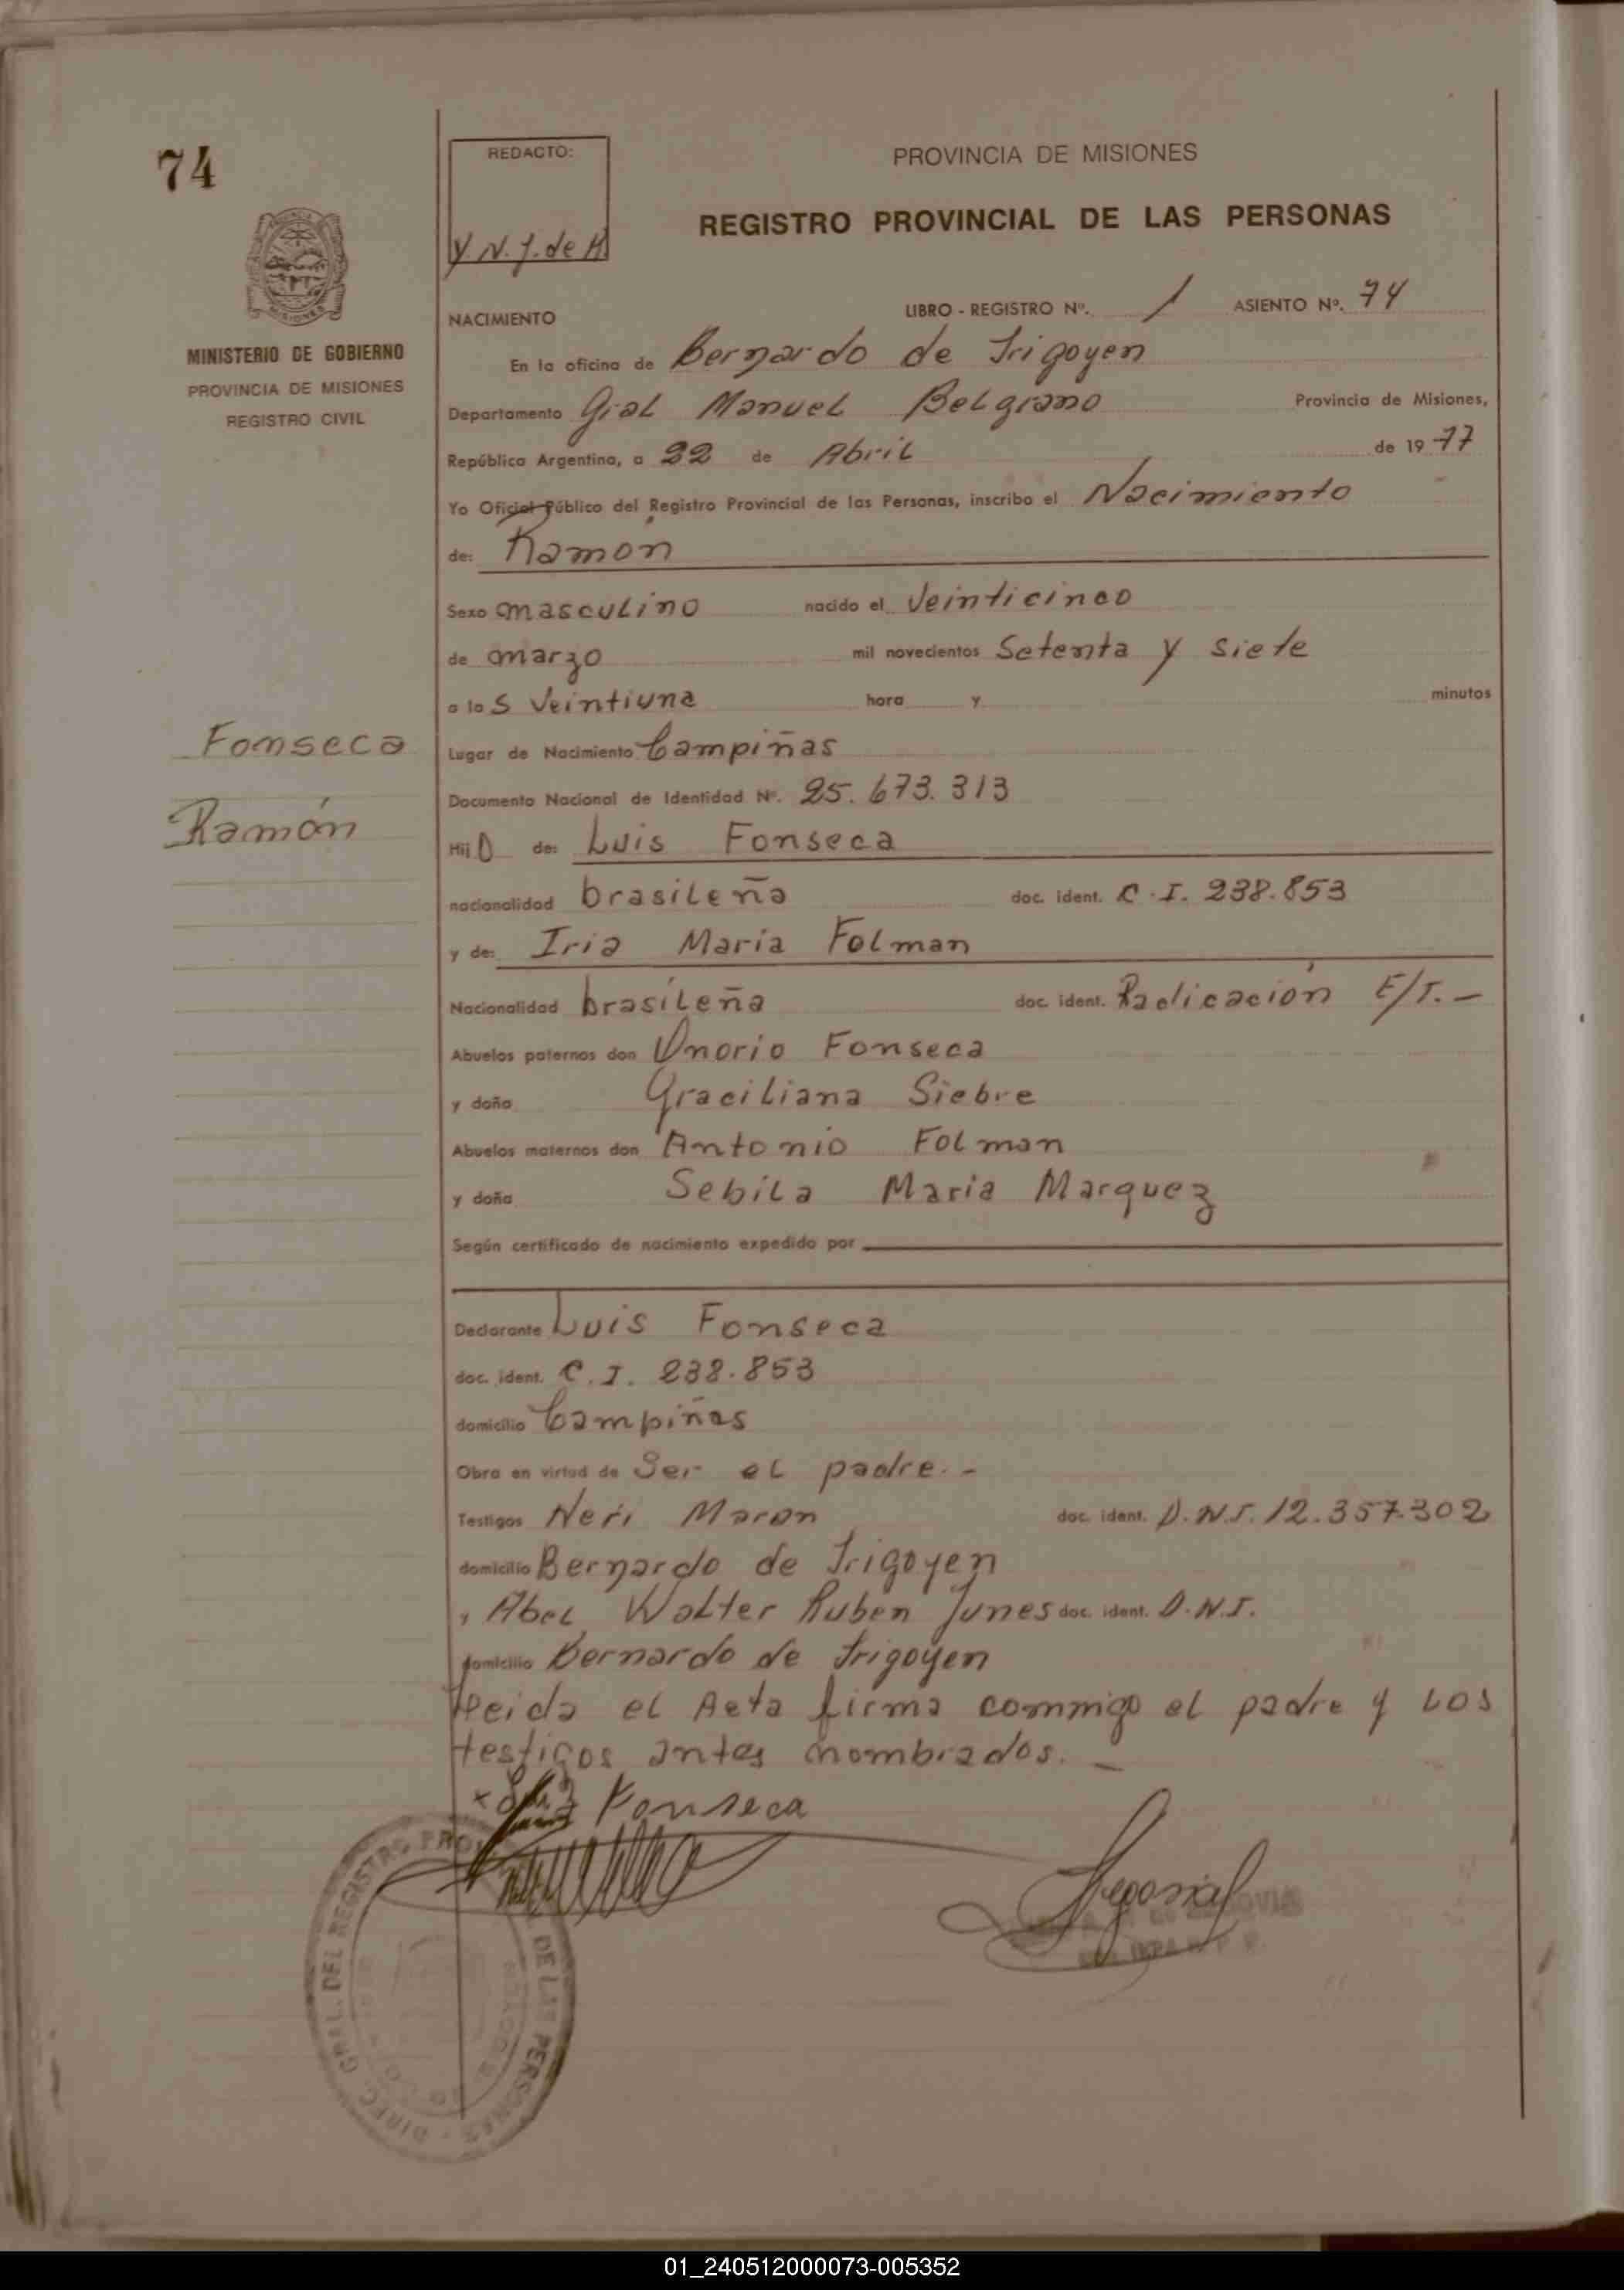 74
MINISTERIO DE GOBIERNO
PROVINCIA DE MISIONES
REGISTRO CIVIL
Fonseca
Ramón
REDACTO:
Y. N. J. de
PROVINCIA DE MISIONES
REGISTRO PROVINCIAL DE LAS PERSONAS
NACIMIENTO LIBRO - REGISTRO Nº. 1 ASIENTO Nº. 74
En la oficina de Bernardo de Irigoyen
Departamento Gral Manuel Belgrano Provincia de Misiones,
República Argentina, a 22 de Abril de 1977
Yo Oficial Público del Registro Provincial de las Personas, inscribo el Nacimiento
de: Ramón
Sexo masculino nacido el Veinticinco
de marzo mil novecientos Setenta y siete
a las Veintiuna hora y minutos
Lugar de Nacimiento Campiñas
Documento Nacional de Identidad Nº. 25.673.313
Hijo de: Luis Fonseca
nacionalidad brasileña doc. ident. C.I. 238.853
y de: Iria María Folman
Nacionalidad brasileña doc. ident. Radicación E/T.-
Abuelos paternos don Onorio Fonseca
y doña Graciliana Siebre
Abuelos maternos don Antonio Folman
y doña Sebila Maria Marquez
Según certificado de nacimiento expedido por
Declarante Luis Fonseca
doc. ident. C.I. 238.853
domicilio Campiñas
Obra en virtud de Ser el padre.-
Testigos Neri Maran doc. ident. D.N.I. 12.357.302
domicilio Bernardo de Irigoyen
y Abel Walter Ruben Junes doc. ident. D.N.I.
domicilio Bernardo de Irigoyen
Leida el Acta firma conmigo el padre y los
testigos antes nombrados.-
x Fonseca
DIREC. GRAL. DEL REGISTRO PROV DE LAS PERSONAS
01_240512000073-005352